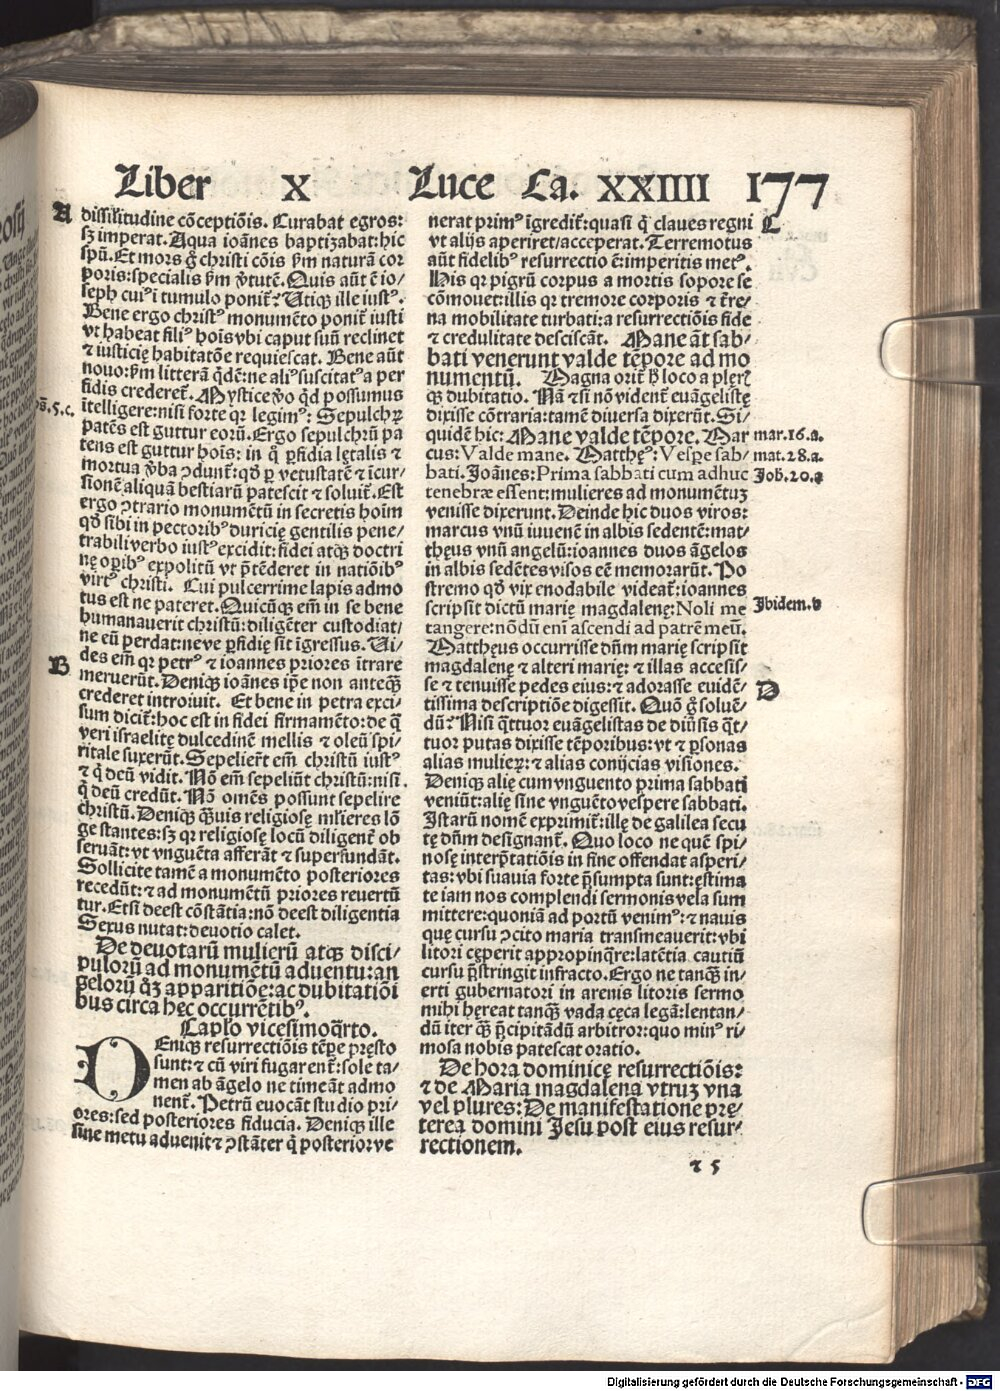 Liber X Luce Ca. XXIIII 177
A
dissilitudine cōceptiōis. Curabat egros:
sz imperat. Aqua ioānes baptizabat: hic
spū. Et mors ḡ christi cōis ẜm naturā cor
poris: specialis ẜm v̄tutē. Quis aūt ē io/
seph cui⁹ ī tumulo ponit̄? Utiqꝫ ille iust⁹.
Bene ergo christ⁹ monumēto ponit̄ iusti
vt habeat fili⁹ hoīs vbi caput suū reclinet
⁊ iusticię habitatōe requiescat. Bene aūt
nouo: ẜm litterā q̄dē: ne ali⁹ suscitat⁹ a per
fidis crederet̄. Mystice v̄o qd possumus
ītelligere: nisi forte qꝛ legim⁹: Sepulchꝝ
patēs est guttur eorū. Ergo sepulchrū pa
tens est guttur hoīs: in q̄ ꝑfidia lętalis ⁊
mortua v̄ba ꝯdunt̄: qd ꝑ vetustatē ⁊ īcur/
sionē aliquā bestiarū patescit ⁊ soluit̄. Est
ergo ꝯtrario monumētū in secretis hoīm
qd sibi in pectorib⁹ duricię gentilis pene/
trabili verbo iust⁹ excidit: fidei atqꝫ doctri
nę oꝑib⁹ expolitū vt p̄tēderet in natiōib⁹
virt⁹ christi. Cui pulcerrime lapis admo
tus est ne pateret. Quicūqꝫ em̄ in se bene
humanauerit christū: diligēter custodiat/
ne eū perdat: neve ꝑfidię sit īgressus. Ui/
B
des em̄ qꝛ petr⁹ ⁊ ioannes priores ītrare
meruerūt. Deniqꝫ ioānes ip̄e non anteqꝫ̄
crederet introiuit. Et bene in petra exci/
sum dicit̄: hoc est in fidei firmamēto: de q̄
veri israelitę dulcedinē mellis ⁊ oleū spi/
ritale suxerūt. Sepelier̄t em̄ christū iust⁹
⁊ q̄ deū vidit. Nō em̄ sepeliūt christū: nisi
q̄ deū credūt. Nō omēs possunt sepelire
christū. Deniqꝫ q̄uis religiosę ml̄ieres lō
ge stantes: sz qꝛ religiosę locū diligent̄ ob
seruāt: vt vnguēta afferāt ⁊ superfundāt.
Sollicite tamē a monumēto posteriores
recedūt: ⁊ ad monumētū priores reuertū
tur. Etsi deest cōstātia: nō deest diligentia
Sexus nutat: deuotio calet.
De deuotarū mulierū atqꝫ disci/
pulorū ad monumētū aduentu: an
gelorū q̄ꝫ apparitiōe: ac dubitatiōi
bus circa hęc occurrētib⁹.
Caplo vicesimoq̄rto.
DEniqꝫ resurrectiōis tēpe pręsto
sunt: ⁊ cū viri fugarent̄: sole ta/
men ab āgelo ne timeāt admo
nent̄. Petrū euocāt studio pri/
ores: sed posteriores fiducia. Deniqꝫ ille
sine metu aduenit ⁊ ꝯstāter q̄ posterior ve
nerat prim⁹ īgredit̄: quasi q̄ claues regni
C
vt alijs aperiret/acceperat. Terremotus
aūt fidelib⁹ resurrectio ē: imperitis met⁹.
His qꝛ pigrū corpus a mortis sopore se
cōmouet: illis qꝛ tremore corporis ⁊ t̄re/
na mobilitate turbati: a resurrectiōis fide
⁊ credulitate desciscāt. Mane āt sab/
bati venerunt valde tēpore ad mo
numentū. Magna orit̄ h̄ loco a pleꝝ
qꝫ dubitatio. Nā ⁊ si nō vident̄ euāgelistę
dixisse cōtraria: tamē diuersa dixerūt. Si/
quidē hic: Mane valde tēpore. Mar
mar. 16. a.
cus: Valde mane. Matthę⁹: Vespe sab/
mat. 28. a.
bati. Joānes: Prima sabbati cum adhuc
Joh. 20. a
tenebræ essent: mulieres ad monumētuꝫ
venisse dixerunt. Deinde hic duos viros:
marcus vnū iuuenē in albis sedentē: mat/
thęus vnū angelū: ioannes duos āgelos
in albis sedētes visos eē memorarūt. Po
stremo qd vix enodabile videāt̄: ioannes
scripsit dictū marię magdalenę: Noli me
Ibidem. v
tangere: nōdū enī ascendi ad patrē meū.
Matthęus occurrisse dn̄m marię scripsit
magdalenę ⁊ alteri marię: ⁊ illas accesis/
se ⁊ tenuisse pedes eius: ⁊ adorasse euidē/
D
tissima descriptiōe digessit. Quō ḡ soluē/
dū? Nisi q̄ttuor euāgelistas de diu̓sis q̄t/
tuor putas dixisse tēporibus: vt ⁊ ꝑsonas
alias mulieꝝ: ⁊ alias conijcias visiones.
Deniqꝫ alię cum vnguento prima sabbati
veniūt: alię sine vnguēto vespere sabbati.
Istarū nomē exprimit̄: illę de galilea secu
tę dn̄m designant̄. Quo loco ne quē spi/
nosę interp̄tatiōis in fine offendat asperi/
tas: vbi suauia forte p̄sumpta sunt: estima
te iam nos complendi sermonis vela sum
mittere: quoniā ad portū venim⁹: ⁊ nauis
quę cursu ꝯcito maria transmeauerit: vbi
litori cęperit appropinq̄re: latētia cautiū
cursu p̄stringit infracto. Ergo ne tanqꝫ in/
erti gubernatori in arenis litoris sermo
mihi hęreat tanqꝫ̄ vada cęca legā: lentan/
dū iter q̄ꝫ p̄cipitādū arbitror: quo min⁹ ri/
mosa nobis patescat oratio.
De hora dominicę resurrectiōis:
⁊ de Maria magdalena vtruꝫ vna
vel plures: De manifestatione pre/
terea domini Jesu post eius resur/
rectionem.
Digitalisierung gefördert durch die Deutsche Forschungsgemeinschaft - DFG